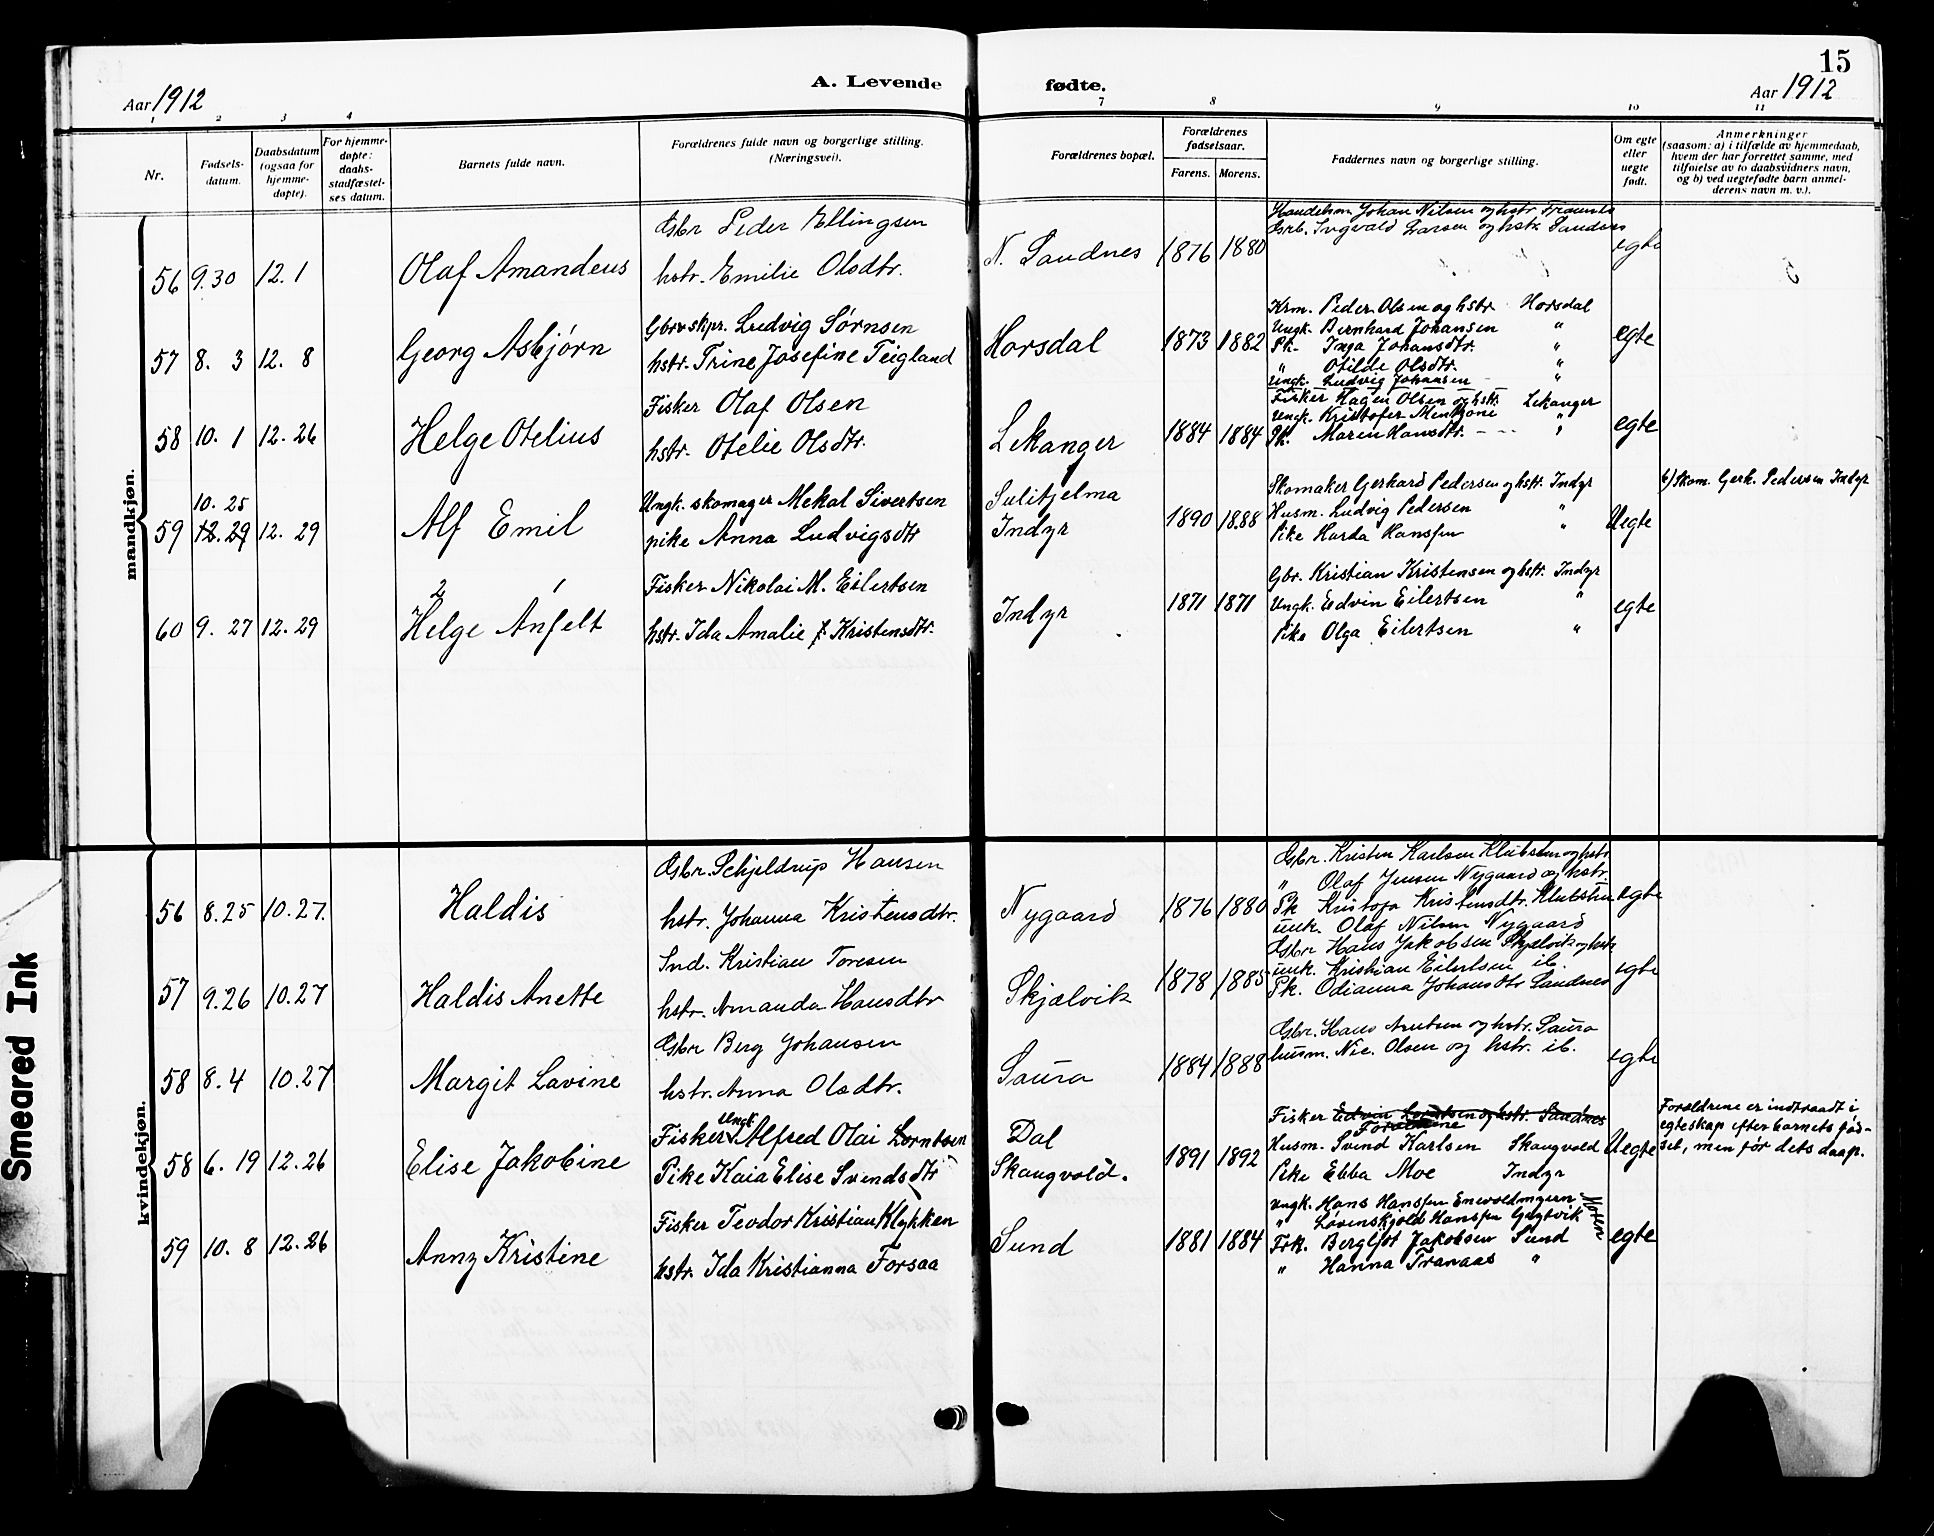 15
Aar 1912
A. Levende fødte.
Aar 1912
1 2 3 4 7 8 9 10 11
Nr.
Fødsels-
datum.
Daabsdatum
(ogsaa for
hjemme-
døpte).
For hjemme-
døpte:
daabs-
stadfæstel-
ses datum.
Barnets fulde navn.
Forældrenes fulde navn og borgerlige stilling.
(Næringsvei).
Forældrenes bopæl.
Forældrenes
fødselsaar.
Farens. Morens.
Faddernes navn og borgerlige stilling.
Om egte
eller
uegte
født.
Anmerkninger
(saasom: a) i tilfælde av hjemmedaab,
hvem der har forrettet samme, med
tilføielse av to daabsvidners navn,
og b) ved uegtefødte barn anmel-
derens navn m. v.).
mandkjøn.
56 9.30 12.1 Olaf Amandeus
Gbr Peder Ellingsen
hstr. Emilie Olsdtr.
N. Sandnes 1876 1880
Handelsm. Johan Nilsen og hstr.
Grb. Ingvald Larsen og hstr. Sandnes
egte
57 8. 3 12. 8 Georg Asbjørn
Gbr & skpr. Ludvig Sørnsen
hstr. Trine Josefine Teigland
Horsdal 1873 1882
Krm. Peder Olsen og hstr Horsdal
Ungk. Bernhard Johansen "
Pk. Inga Johansdtr. "
" Otilde Olsdtr. "
Ungk. Ludvig Johansen "
egte
58 10. 1 12. 26 Helge Otelius
Fisker Olaf Olsen
hstr. Otelie Olsdtr.
Lekanger 1884 1884
Fisker Hagen Olsen og hstr. Lekanger
Ungk. Kristofer Mentzoni "
Pk. Maren Hansdtr. "
egte
59 10. 25
12. 29 12. 29 Alf Emil
Ungk. skomager Mekal Sivertsen
pike Anna Ludvigsdtr
Sulitjelma
Indyr 1890 1888
Skomaker Gerhard Pedersen og hstr. Indyr
Husm. Ludvig Pedersen "
Pike Harda Hanssen "
Uegte
b) Skom. Gerh. Pedersen Indyr
60 9. 27 12. 29 2 1
Helge Anfelt
Fisker Nikolai M. Eilertsen
hstr. Ida Amalie Kristensdtr.
Indyr 1871 1871
Gbr. Kristian Kristensen og hstr. Indyr
Ungk. Edvin Eilertsen "
Pike Olga Eilertsen "
egte
kvindekjøn.
56 8.25 10.27. Haldis
Gbr. Schjeldrup Hansen
hstr. Johanna Kristensdtr.
Nygaard 1876 1880
Gbr. Kristen Karlsen Klubsten og hstr.
" Olaf Jensen Nygaard og hstr.
Pk Kristofa Kristensdtr. Klubsten
unk. Olaf Nilsen Nygaard
egte
57 9.26 10.27 Haldis Anette
Ind. Kristian Toresen
hstr. Amanda Hansdtr
Skjælvik 1878 1885
Gbr Hans Jakobsen Skjelvik og hstr
unk. Kristian Eilertsen ib.
Pk. Odianna Johansdtr Sandnes
egte
58 8.4 10.27 Margit Lavine
Gbr Berg Johansen
hstr. Anna Olsdtr.
Saura 1884 1888
Gbr. Hans Arntsen og hstr. Saura
husm. Nic. Olsen og hstr. ib.
egte
58 6. 19 12.26 Elise Jakobine
Fisker Ungk. Alfred Olai Lorntsen
Pike Kaia Elise Svendsdtr
Dal
Skaugvold. 1891 1892
Fisker Edvin Lorntsen og hstr. Sandnes
Forældrene
Husm. Svind Karlsen Skaugvold
Pike Ebba Moe Indyr
Uegte
Forældrene er indtraadt i
egteskap efter barnets fød-
sel, men før dets daap.
59 10. 8 12.26 Anny Kristine
Fisker Teodor Kristian Klykken
hstr. Ida Kristianna Forsaa
Sund 1881 1884
Ungk. Hans Hanssen
" Løvenskjold Hanssen
Frk. Bergljot Jakobsen Sund
" Hanna Tranaas "
egte
Smeared Ink